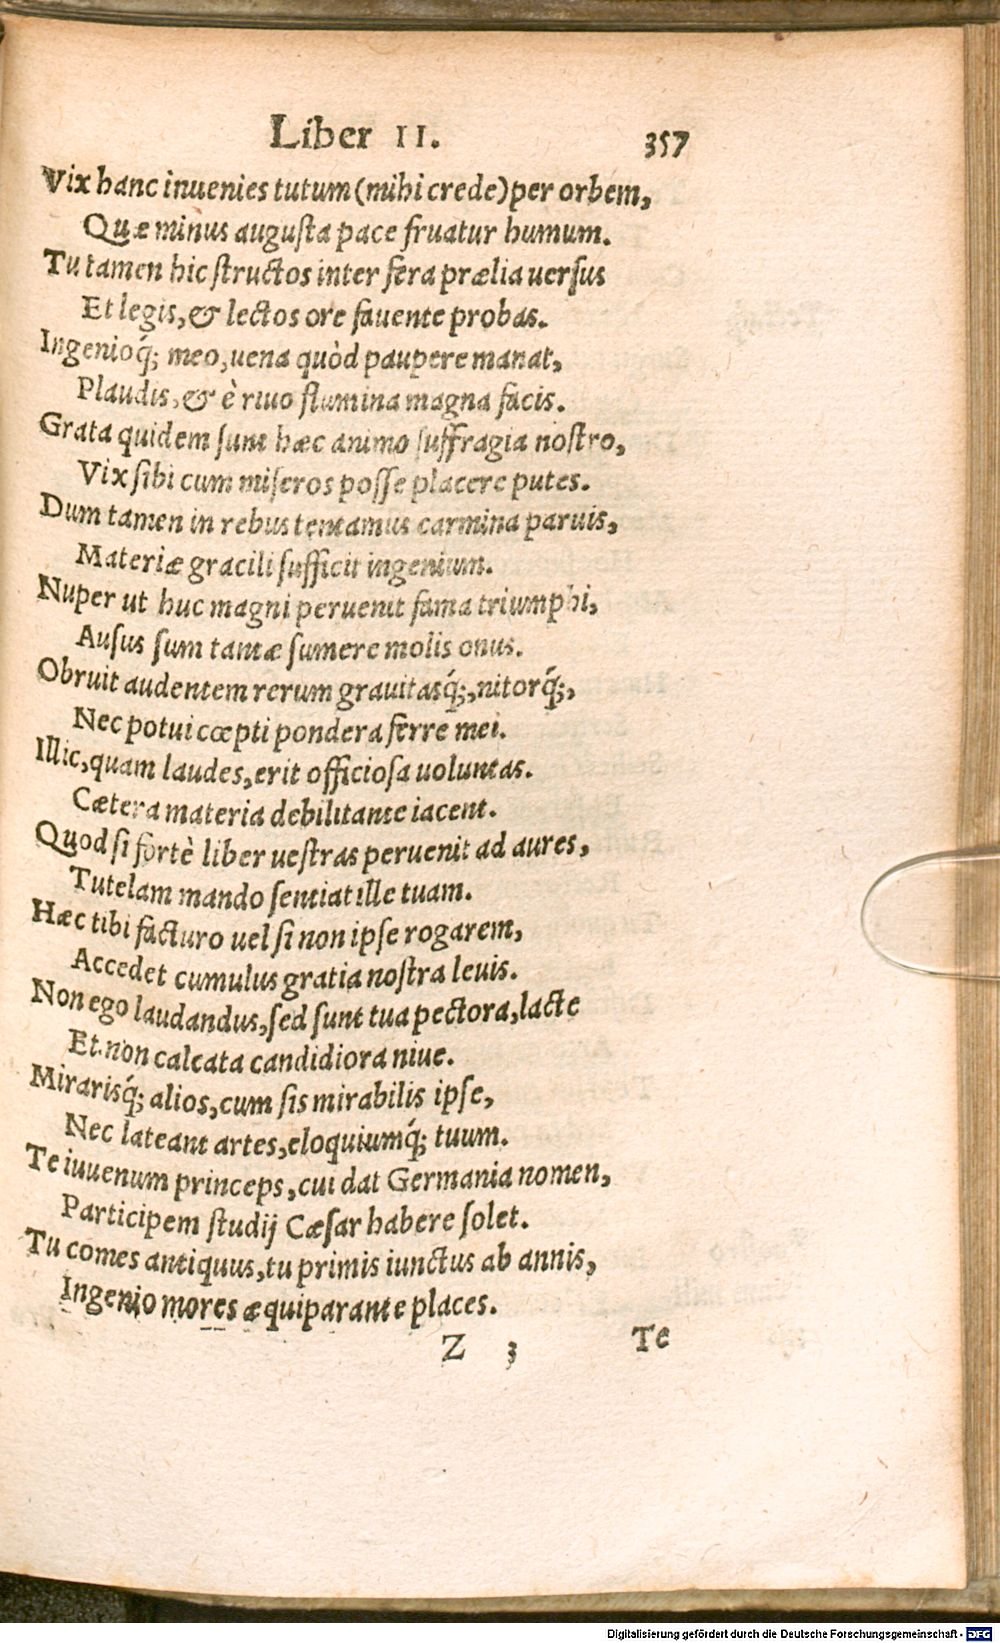 Liber II. 357
Vix hanc inuenies tutum (mihi crede) per orbem,
Quæ minus augusta pace fruatur humum.
Tu tamen hic structos inter fera prælia uersus
Et legis, & lectos ore fauente probas.
Ingenioq́; meo, uena quòd paupere manat,
Plaudis, & è riuo flumina magna facis.
Grata quidem sunt hæc animo suffragia nostro,
Vix sibi cum miseros posse placere putes.
Dum tamen in rebus tentamus carmina paruis,
Materiæ gracili sufficit ingenium.
Nuper ut huc magni peruenit fama triumphi,
Ausus sum tantæ sumere molis onus.
Obruit audentem rerum grauitasq́;, nitorq́;,
Nec potui cœpti pondera ferre mei.
Illic, quam laudes, erit officiosa uoluntas.
Cætera materia debilitante iacent.
Quod si fortè liber uestras peruenit ad aures,
Tutelam mando sentiat ille tuam.
Hæc tibi facturo uel si non ipse rogarem,
Accedet cumulus gratia nostra leuis.
Non ego laudandus, sed sunt tua pectora, lacte
Et non calcata candidiora niue.
Mirarisq́; alios, cum sis mirabilis ipse,
Nec lateant artes, eloquiumq́; tuum.
Te iuuenum princeps, cui dat Germania nomen,
Participem studij Cæsar habere solet.
Tu comes antiquus, tu primis iunctus ab annis,
Ingenio mores æquiparante places.
Z 3 Te
Digitalisierung gefördert durch die Deutsche Forschungsgemeinschaft - DFG